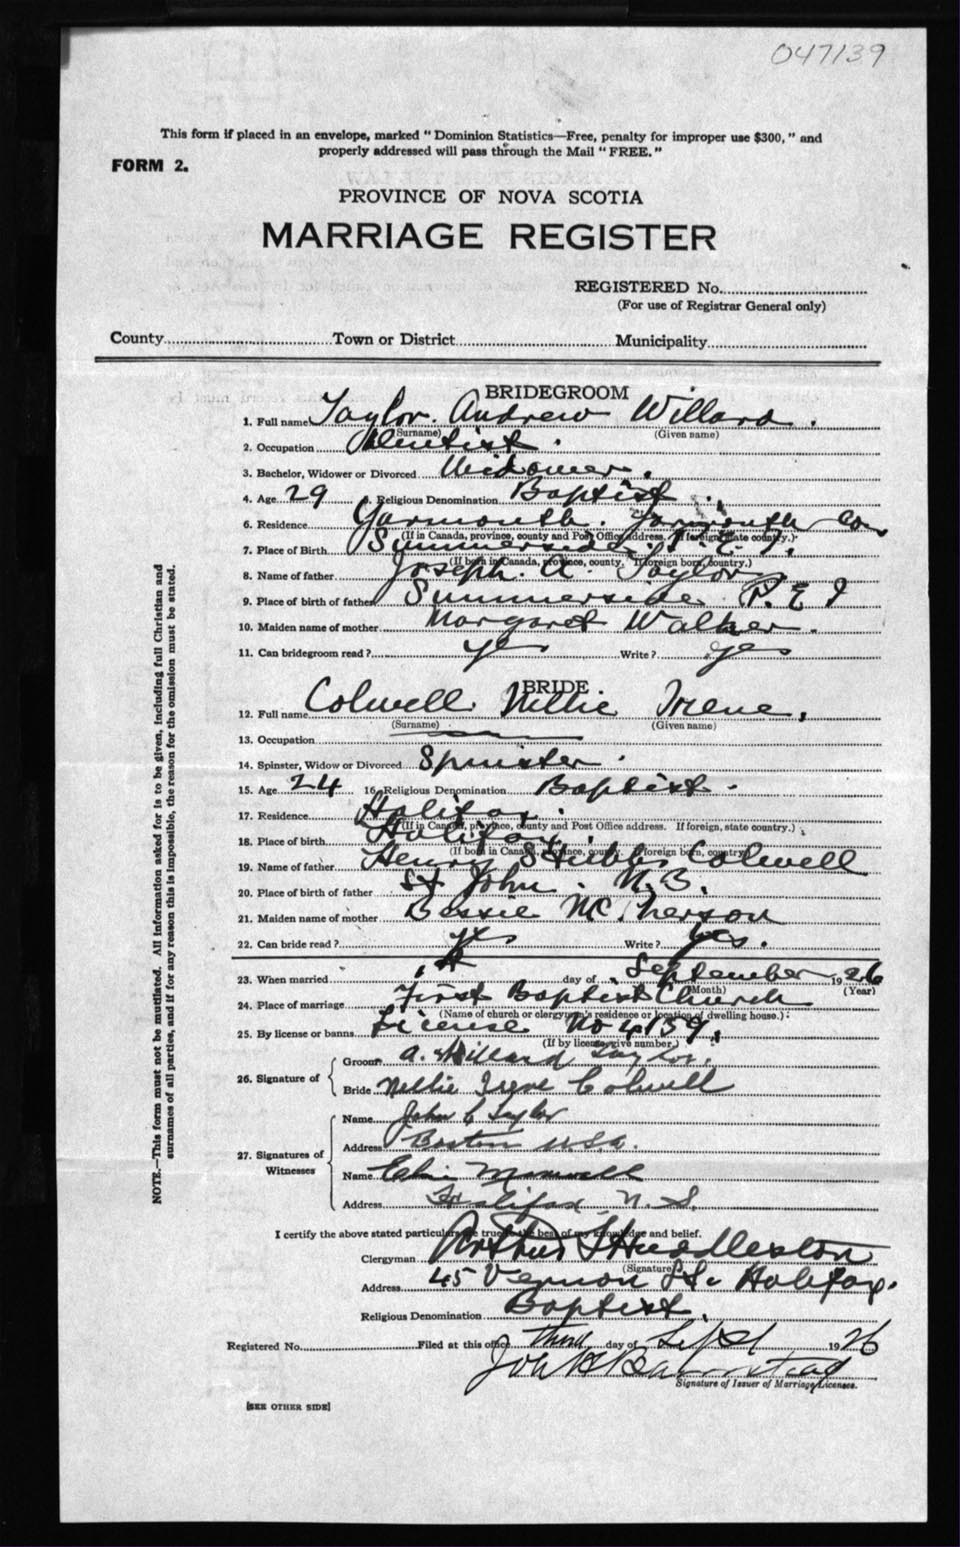 047139
This form if placed in an envelope, marked " Dominion Statistics—Free, penalty for improper use $300, " and
properly addressed will pass through the Mail " FREE. "
FORM 2.
PROVINCE OF NOVA SCOTIA
MARRIAGE REGISTER
REGISTERED No.
(For use of Registrar General only)
County Town or District Municipality
BRIDEGROOM
1. Full name Taylor. Andrew Willard.
(Surname) (Given name)
2. Occupation Dentist.
3. Bachelor, Widower or Divorced Widower.
4. Age 29 5. Religious Denomination Baptist.
6. Residence Yarmouth. Yarmouth Co
(If in Canada, province, county and Post Office address. If foreign, state country.)
7. Place of Birth Summerside P.E.I.
(If born in Canada, province, county. If foreign born, country.)
8. Name of father Joseph. A. Taylor
9. Place of birth of father Summerside P.E I
10. Maiden name of mother Margaret Walker.
11. Can bridegroom read ? yes Write ? yes
BRIDE
12. Full name Colwell Nellie Irene,
(Surname) (Given name)
13. Occupation
14. Spinster, Widow or Divorced Spinster.
15. Age 24 16. Religious Denomination Baptist.
17. Residence Halifax.
(If in Canada, province, county and Post Office address. If foreign, state country.)
18. Place of birth Halifax.
(If born in Canada, province, county. If foreign born, country)
19. Name of father Henry Colwell
20. Place of birth of father St John. N.B.
21. Maiden name of mother Bessie McPherson
22. Can bride read ? yes Write ? yes.
23. When married day of September 1926
(Month) (Year)
24. Place of marriage First Baptist Church
(Name of church or clergyman's residence or location of dwelling house.)
25. By license or banns License No 4159.
(If by license give number)
26. Signature of
Groom A. Willard Taylor.
Bride Nellie Irene Colwell
27. Signatures of Witnesses
Name John C Taylor
Address Boston U.S.A.
Name Maxwell
Address Halifax, N. S.
I certify the above stated particulars are true to the best of my knowledge and belief.
Clergyman Arthur S Huddleston
(Signature)
Address 45 Vernon St. Halifax.
Religious Denomination Baptist.
Registered No. Filed at this office third day of Sept 1926
Signature of Issuer of Marriage Licenses.
[SEE OTHER SIDE]
NOTE.—This form must not be mutilated. All information asked for is to be given, including full Christian and
surnames of all parties, and if for any reason this is impossible, the reason for the omission must be stated.